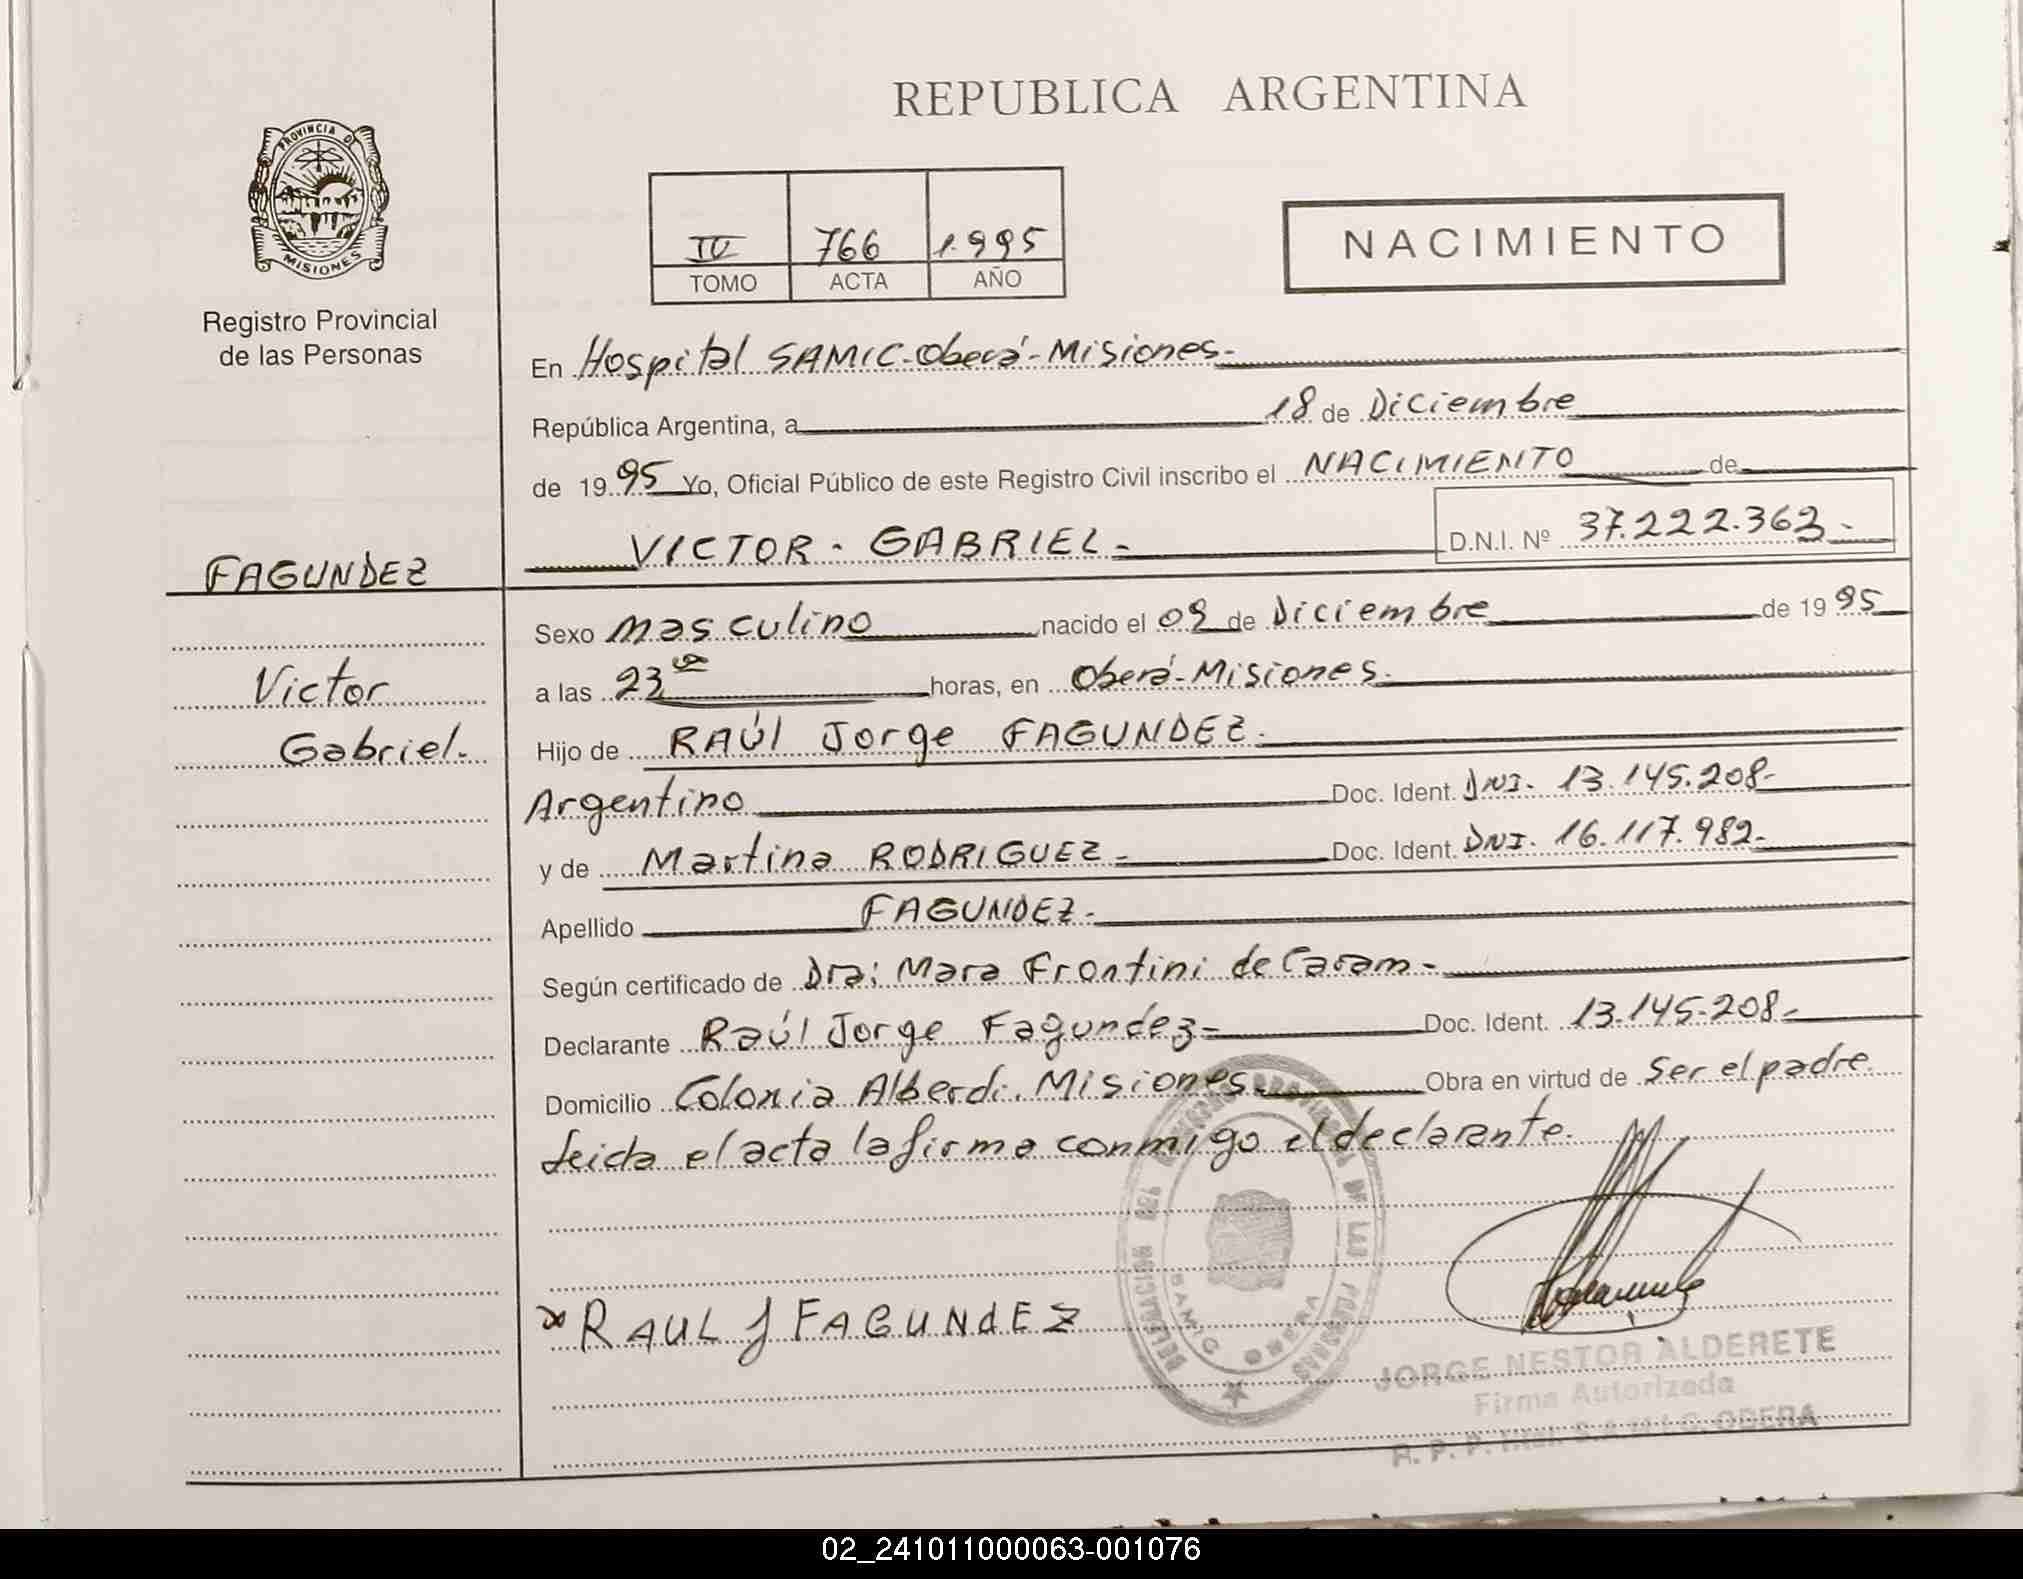 REPUBLICA ARGENTINA
PROVINCIA DE
MISIONES
Registro Provincial
de las Personas
IV 766 1.995
TOMO ACTA AÑO
NACIMIENTO
En Hospital SAMIC-Oberá-Misiones-
República Argentina, a 18 de Diciembre
de 1995 Yo, Oficial Público de este Registro Civil inscribo el NACIMIENTO de
VICTOR - GABRIEL - D.N.I. Nº 37.222.362.-
FAGUNDEZ
Victor
Gabriel.
Sexo masculino nacido el 09 de Diciembre de 1995
a las 23 horas, en Oberá-Misiones.
Hijo de RAÚl Jorge FAGUNDEZ.
Argentino Doc. Ident. DNI. 13.145.208-
y de Martina RODRIGUEZ - Doc. Ident. DNI. 16.117.982-
Apellido FAGUNDEZ.-
Según certificado de Dra; Mara Frontini de Caram-
Declarante Raúl Jorge Fagundez= Doc. Ident. 13.145.208.-
Domicilio Colonia Alberdi. Misiones Obra en virtud de Ser el padre
Leida el acta la firma conmigo el declarante.
RAUL J FAGUNDEZ
DE LAS PERSONAS
DELEGACION
SAMIC OBERA
JORGE NESTOR ALDERETE
Firma Autorizada
R. P. P. Htal. S.A.M.I.C. OBERA
02_241011000063-001076